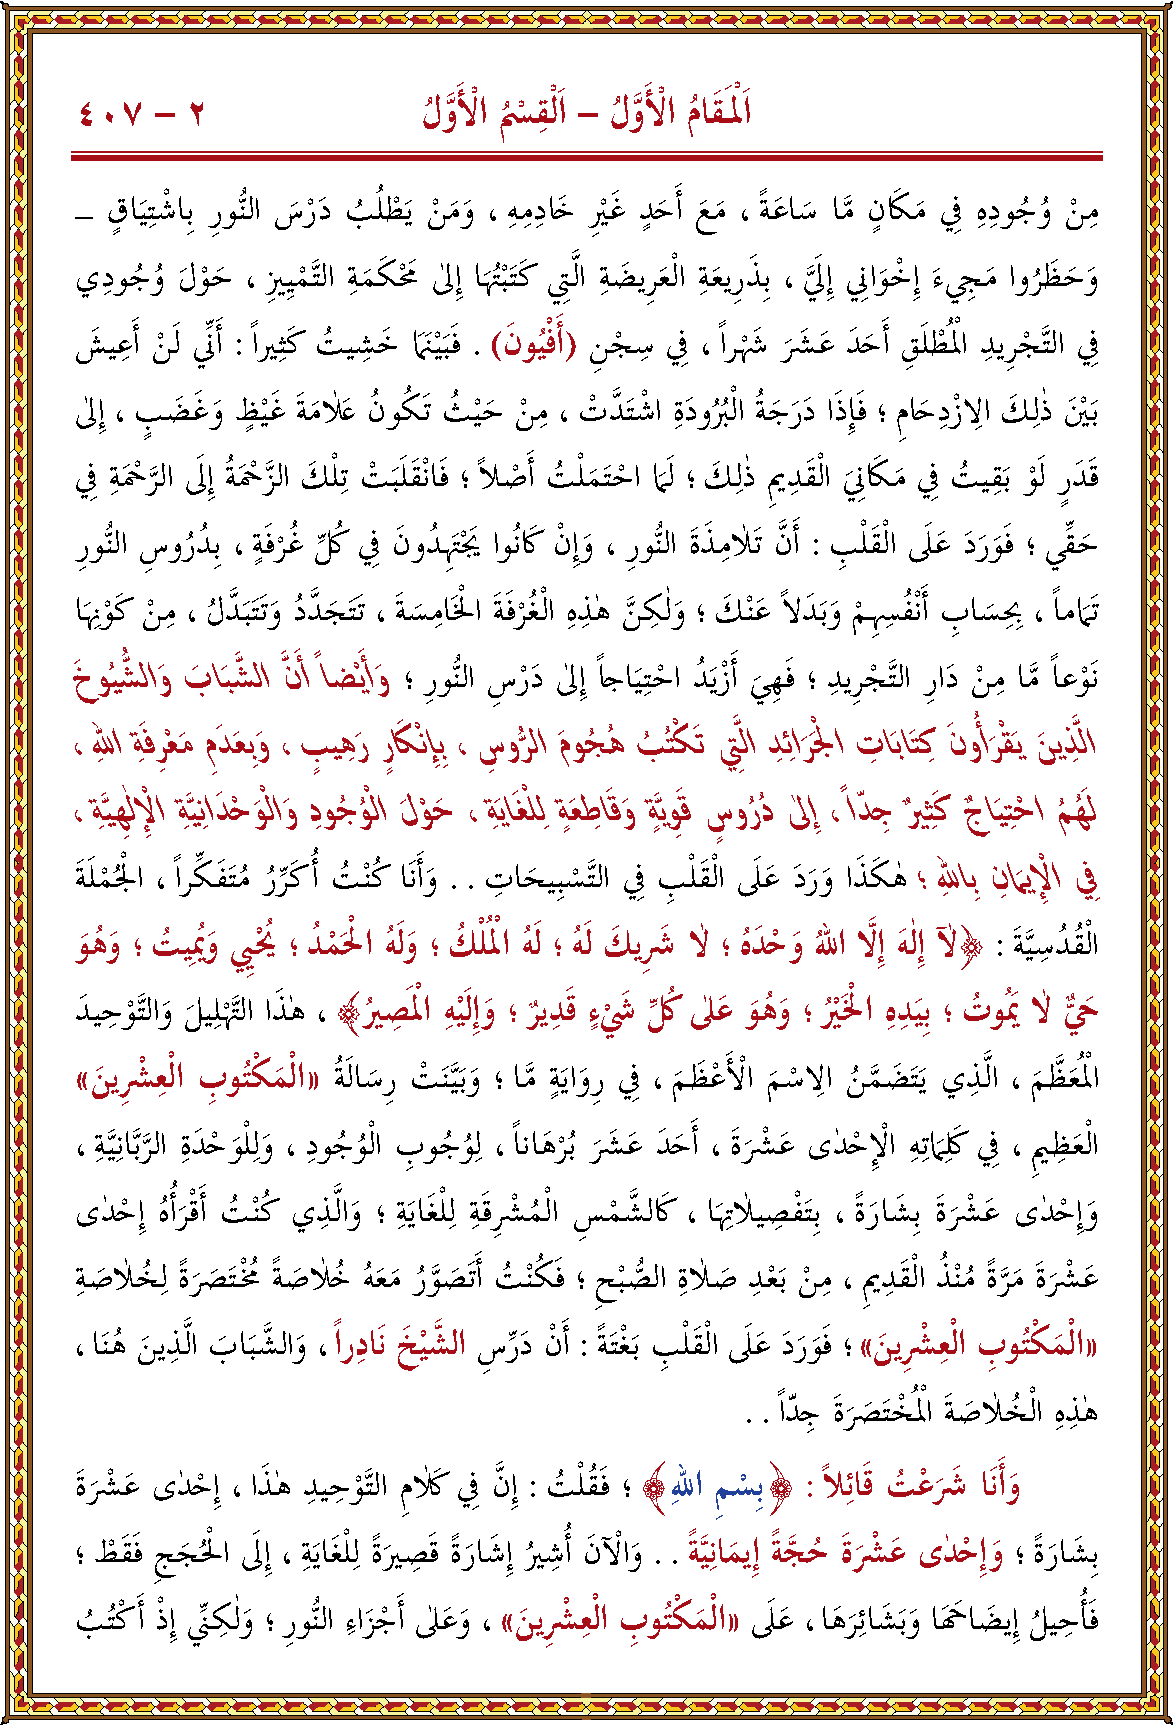 اَلْمَقَامُ الْأَوَّلُ – اَلْقِسْمُ الْأَوَّلُ ٢ – ٤٠٧
مِنْ وُجُودِهِ فِي مَكَانٍ مَّا سَاعَةً ، مَعَ أَحَدٍ غَيْرِ خَادِمِهِ ، وَمَنْ يَطْلُبُ دَرْسَ النُّورِ بِاشْتِيَاقٍ –
وَحَظَرُوا مَجِيءَ إِخْوَانِي إِلَيَّ ، بِذَرِيعَةِ الْعَرِيضَةِ الَّتِي كَتَبْتُهَا إِلىٰ مَحْكَمَةِ التَّمْيِيزِ ، حَوْلَ وُجُودِي
فِي التَّجْرِيدِ الْمُطْلَقِ أَحَدَ عَشَرَ شَهْراً ، فِي سِجْنِ (أَفْيُونَ) . فَبَيْنَمَا خَشِيتُ كَثِيراً : أَنِّي لَنْ أَعِيشَ
بَيْنَ ذٰلِكَ الِازْدِحَامِ ؛ فَإِذَا دَرَجَةُ الْبُرُودَةِ اشْتَدَّتْ ، مِنْ حَيْثُ تَكُونُ عَلَامَةَ غَيْظٍ وَغَضَبٍ ، إِلىٰ
قَدَرٍ لَوْ بَقِيتُ فِي مَكَانِيَ الْقَدِيمِ ذٰلِكَ ؛ لَمَا احْتَمَلْتُ أَصْلاً ؛ فَانْقَلَبَتْ تِلْكَ الزَّحْمَةُ إِلَى الرَّحْمَةِ فِي
حَقِّي ؛ فَوَرَدَ عَلَى الْقَلْبِ : أَنَّ تَلَامِذَةَ النُّورِ ، وَإِنْ كَانُوا يَجْتَهِدُونَ فِي كُلِّ غُرْفَةٍ ، بِدُرُوسِ النُّورِ
تَمَاماً ، بِحِسَابِ أَنْفُسِهِمْ وَبَدَلاً عَنْكَ ؛ وَلٰكِنَّ هٰذِهِ الْغُرْفَةَ الْخَامِسَةَ ، تَتَجَدَّدُ وَتَتَبَدَّلُ ، مِنْ كَوْنِهَا
نَوْعاً مَّا مِنْ دَارِ التَّجْرِيدِ ؛ فَهِيَ أَزْيَدُ احْتِيَاجاً إِلىٰ دَرْسِ النُّورِ ؛ وَأَيْضاً أَنَّ الشَّبَابَ وَالشُّيُوخَ
الَّذِينَ يَقْرَأُونَ كِتَابَاتِ الْجَرَائِدِ الَّتِي تَكْتُبُ هُجُومَ الرُّوسِ ، بِإِنْكَارٍ رَهِيبٍ ، وَبِعَدَمِ مَعْرِفَةِ اللهِ ،
لَهُمُ احْتِيَاجٌ كَثِيرٌ جِدّاً ، إِلىٰ دُرُوسٍ قَوِيَّةٍ وَقَاطِعَةٍ لِلْغَايَةِ ، حَوْلَ الْوُجُودِ وَالْوَحْدَانِيَّةِ الْإِلٰهِيَّةِ ،
فِي الْإِيمَانِ بِاللهِ ؛ هٰكَذَا وَرَدَ عَلَى الْقَلْبِ فِي التَّسْبِيحَاتِ . . وَأَنَا كُنْتُ أُكَرِّرُ مُتَفَكِّراً ، الْجُمْلَةَ
الْقُدُسِيَّةَ : ﴿لَآ إِلٰهَ إِلَّا اللهُ وَحْدَهُ ؛ لَا شَرِيكَ لَهُ ؛ لَهُ الْمُلْكُ ؛ وَلَهُ الْحَمْدُ ؛ يُحْيِي وَيُمِيتُ ؛ وَهُوَ
حَيٌّ لَا يَمُوتُ ؛ بِيَدِهِ الْخَيْرُ ؛ وَهُوَ عَلىٰ كُلِّ شَيْءٍ قَدِيرٌ ؛ وَإِلَيْهِ الْمَصِيرُ﴾ ، هٰذَا التَّهْلِيلَ وَالتَّوْحِيدَ
الْمُعَظَّمَ ، الَّذِي يَتَضَمَّنُ الِاسْمَ الْأَعْظَمَ ، فِي رِوَايَةٍ مَّا ؛ وَبَيَّنَتْ رِسَالَةُ «الْمَكْتُوبِ الْعِشْرِينَ»
الْعَظِيمِ ، فِي كَلِمَاتِهِ الْإِحْدٰى عَشْرَةَ ، أَحَدَ عَشَرَ بُرْهَاناً ، لِوُجُوبِ الْوُجُودِ ، وَلِلْوَحْدَةِ الرَّبَّانِيَّةِ ،
وَإِحْدٰى عَشْرَةَ بِشَارَةً ، بِتَفْصِيلَاتِهَا ، كَالشَّمْسِ الْمُشْرِقَةِ لِلْغَايَةِ ؛ وَالَّذِي كُنْتُ أَقْرَأُهُ إِحْدٰى
عَشْرَةَ مَرَّةً مُنْذُ الْقَدِيمِ ، مِنْ بَعْدِ صَلَاةِ الصُّبْحِ ؛ فَكُنْتُ أَتَصَوَّرُ مَعَهُ خُلَاصَةً مُخْتَصَرَةً لِخُلَاصَةِ
«الْمَكْتُوبِ الْعِشْرِينَ» ؛ فَوَرَدَ عَلَى الْقَلْبِ بَغْتَةً : أَنْ دَرِّسِ الشَّيْخَ نَادِراً ، وَالشَّبَابَ الَّذِينَ هُنَا ،
هٰذِهِ الْخُلَاصَةَ الْمُخْتَصَرَةَ جِدّاً . .
وَأَنَا شَرَعْتُ قَائِلاً : ﴿بِسْمِ اللهِ﴾ ؛ فَقُلْتُ : إِنَّ فِي كَلَامِ التَّوْحِيدِ هٰذَا ، إِحْدٰى عَشْرَةَ
بِشَارَةً ؛ وَإِحْدٰى عَشْرَةَ حُجَّةً إِيمَانِيَّةً . . وَالْآنَ أُشِيرُ إِشَارَةً قَصِيرَةً لِلْغَايَةِ ، إِلَى الْحُجَجِ فَقَطْ ؛
فَأُحِيلُ إِيضَاحَهَا وَبَشَائِرَهَا ، عَلَى «الْمَكْتُوبِ الْعِشْرِينَ» ، وَعَلىٰ أَجْزَاءِ النُّورِ ؛ وَلٰكِنِّي إِذْ أَكْتُبُ